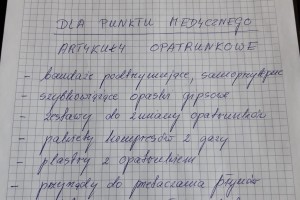 DLA PUNKTU MEDYCZNEGO
ARTYKUŁY OPATRUNKOWE
- bandaże podtrzymujące, samoprzylepne
- szybkowiążące opaski gipsowe
- zestawy do zmiany opatrunków
- pakiety kompresów z gazy
- plastry z opatrunkiem
- przyrządy do przetaczania płynów